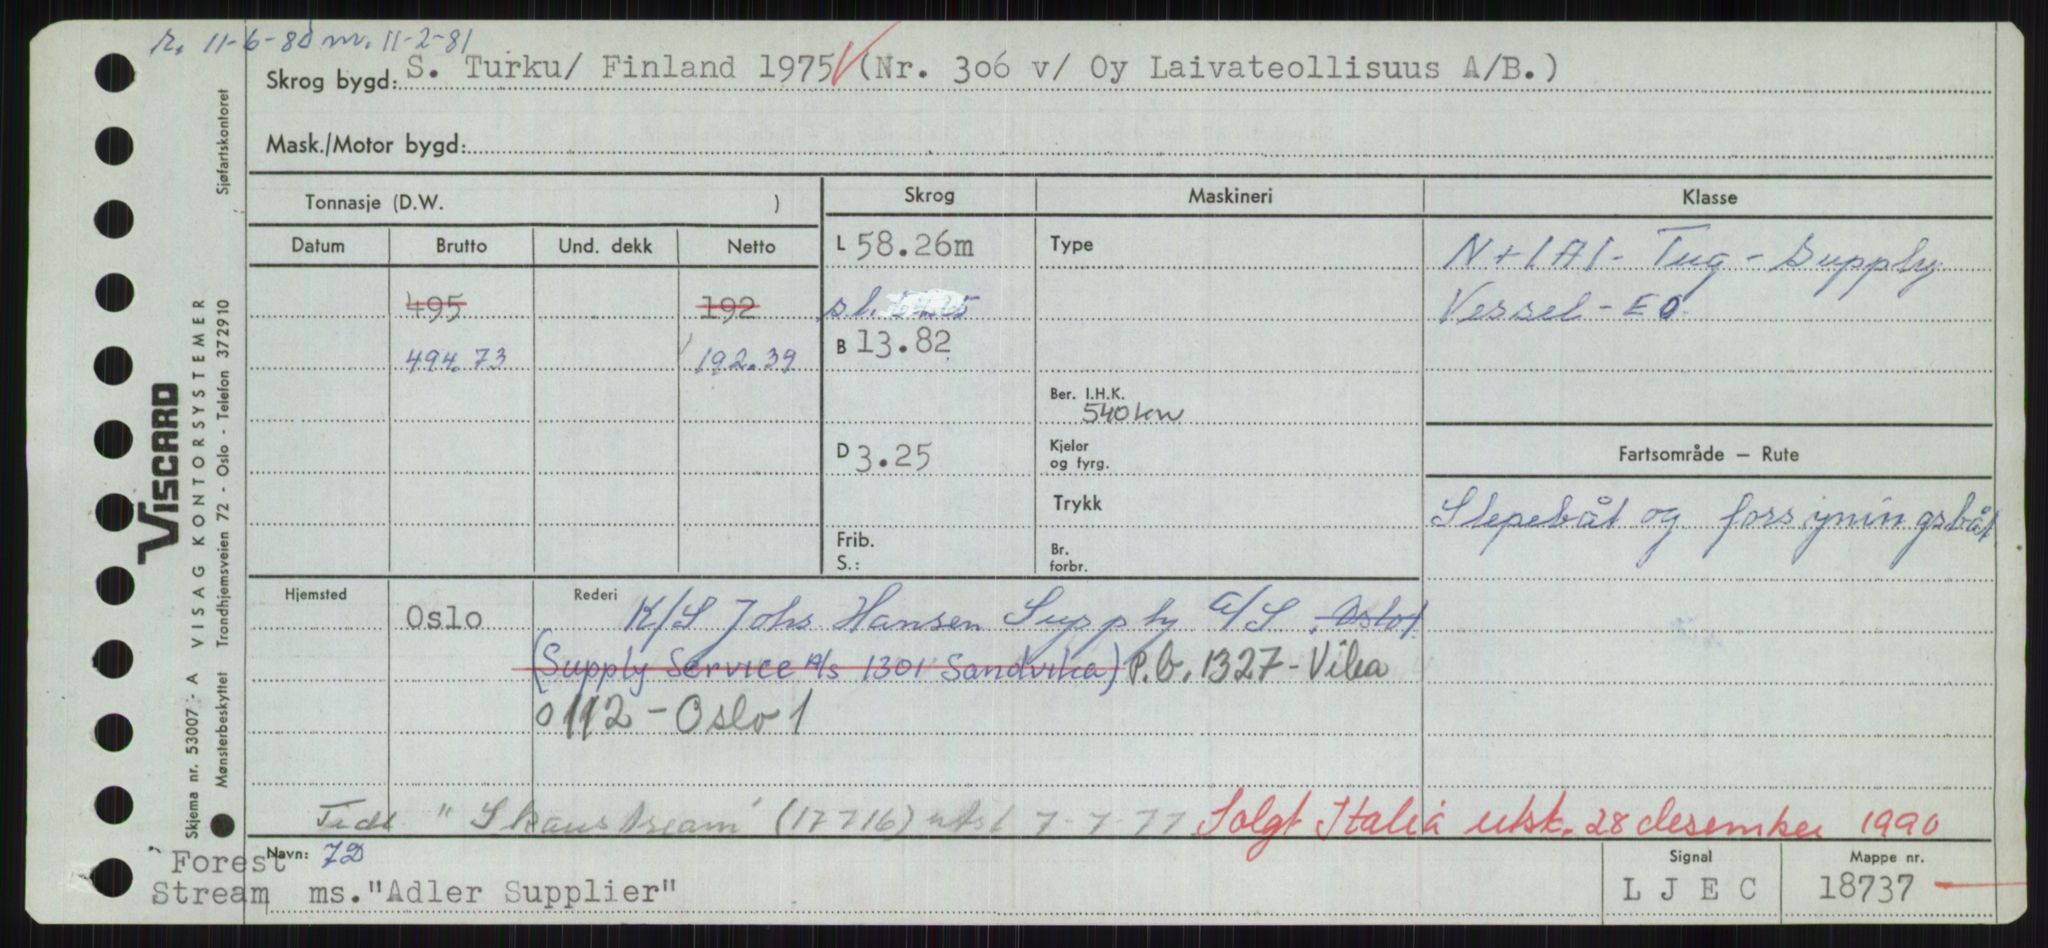 r. 11-6-80 m. 11-2-81
Skrog bygd: S. Turku/ Finland 1975 (Nr. 306 v/ Oy Laivateollisuus A/B.)
Mask./Motor bygd:
Tonnasje (D.W. ) Skrog Maskineri Klasse
Datum Brutto Und. dekk Netto L 58.26m Type N+1A1- Tug - Supply
495 192 s.l. Vessel - EO
494.73 192.39 B 13.82
Ber. I.H.K.
540 kw
D 3.25 Kjeler og fyrg. Fartsområde — Rute
Trykk Slepebåt og forsyningsbåt
Frib. S.: Br. forbr.
Hjemsted Oslo Rederi K/S Johs Hansen Supply A/S, Oslo 1
(Supply Service A/S 1301 Sandvika) P.b. 1327 - Vika
0112 - Oslo 1
Tidl "Skaustream" (17716) utsl 7-7-77 Solgt Italia utsk. 28 desember 1990
Navn: 7D Signal Mappe nr.
Forest
Stream ms. "Adler Supplier" L J E C 18737
Sjøfartskontoret
VISCARD
A VISAG KONTORSYSTEMER
Trondhjemsveien 72 - Oslo - Telefon 372910
Skjema nr. 53007 - A
Mønsterbeskyttet